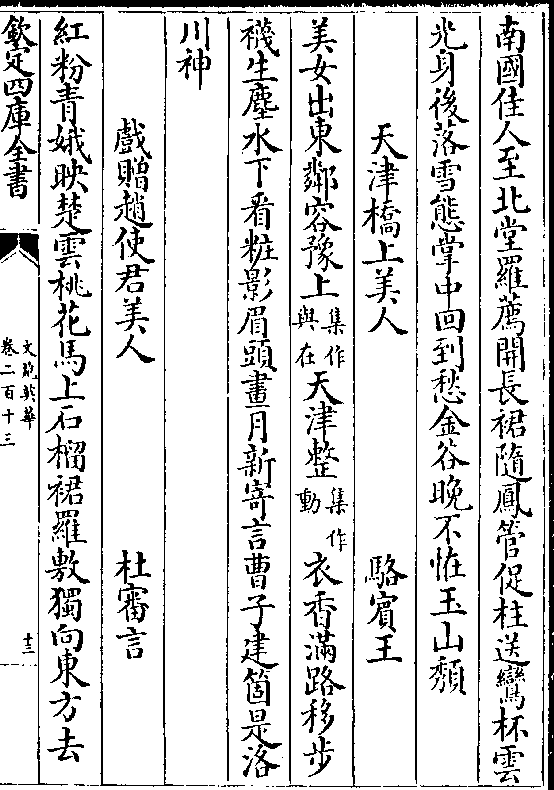 南國佳人至北堂羅薦開長裙隨鳳管促柱送鸞杯雲
光身後落雪態掌中回到愁金谷晚不恠玉山頹
天津橋上美人 駱賓王
美女出東鄰容豫上集作與在天津整集作動衣香滿路移步
襪生塵水下看粧影眉頭畫月新寄言曹子建箇是洛
川神
戲贈趙使君美人 杜審言
紅粉青娥映楚雲桃花馬上石榴裙羅敷獨向東方去
欽定四庫全書 文苑英華 卷二百十三 十三